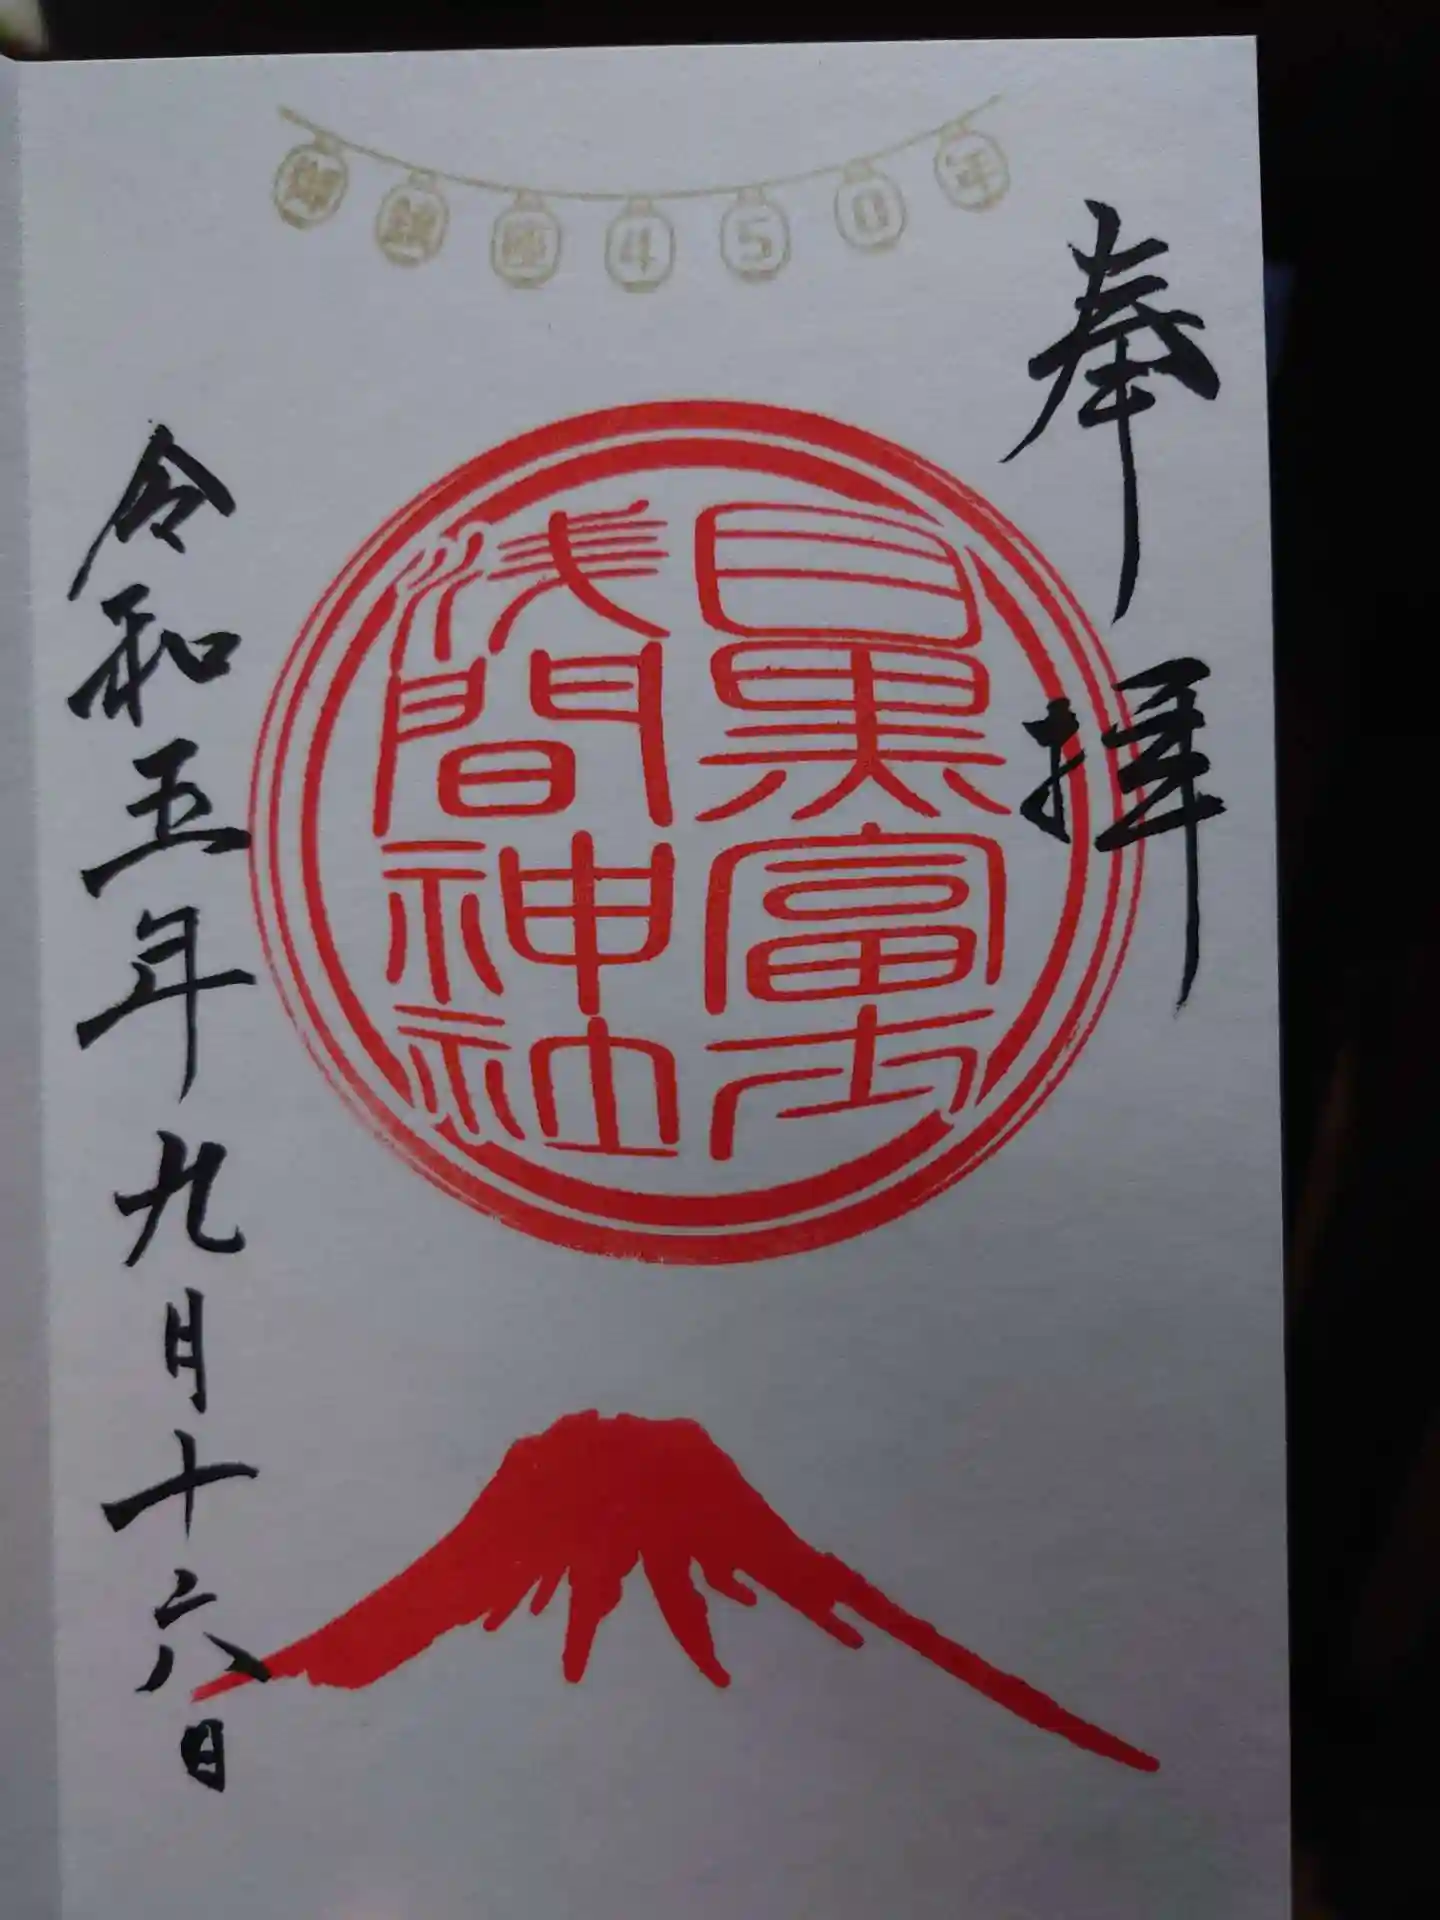 御鎮座450年
奉拝
目黒富士
浅間神社
令和五年九月十六日